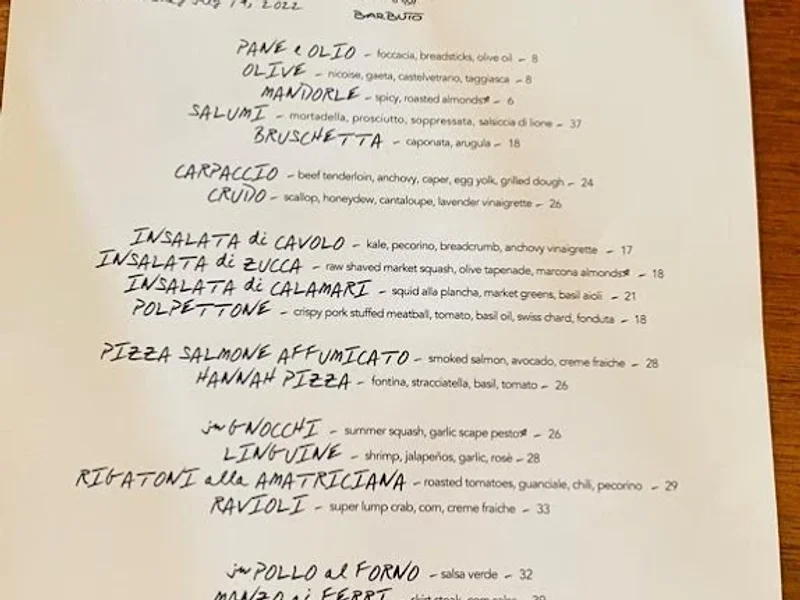 July 14, 2022
BARBUTO
PANE e OLIO – foccacia, breadsticks, olive oil – 8
OLIVE – nicoise, gaeta, castelvetrano, taggiasca – 8
MANDORLE – spicy, roasted almonds – 6
SALUMI – mortadella, prosciutto, soppressata, salsiccia di lione – 37
BRUSCHETTA – caponata, arugula – 18
CARPACCIO – beef tenderloin, anchovy, caper, egg yolk, grilled dough – 24
CRUDO – scallop, honeydew, cantaloupe, lavender vinaigrette – 26
INSALATA di CAVOLO – kale, pecorino, breadcrumb, anchovy vinaigrette – 17
INSALATA di ZUCCA – raw shaved market squash, olive tapenade, marcona almonds – 18
INSALATA di CALAMARI – squid alla plancha, market greens, basil aioli – 21
POLPETTONE – crispy pork stuffed meatball, tomato, basil oil, swiss chard, fonduta – 18
PIZZA SALMONE AFFUMICATO – smoked salmon, avocado, creme fraiche – 28
HANNAH PIZZA – fontina, stracciatella, basil, tomato – 26
jw GNOCCHI – summer squash, garlic scape pesto – 26
LINGUINE – shrimp, jalapeños, garlic, rosè – 28
RIGATONI alla AMATRICIANA – roasted tomatoes, guanciale, chili, pecorino – 29
RAVIOLI – super lump crab, corn, creme fraiche – 33
jw POLLO al FORNO – salsa verde – 32
MANZO ai FERRI